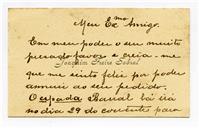 Meu Ex.mo Amigo.
Em meu poder o seu muito
prezado favor e creia-me
Joaquim Freire Sobral
que me sinto feliz por poder
annuir ao seu pedido.
O espada Banal lá irá
no dia 29 do corrente para